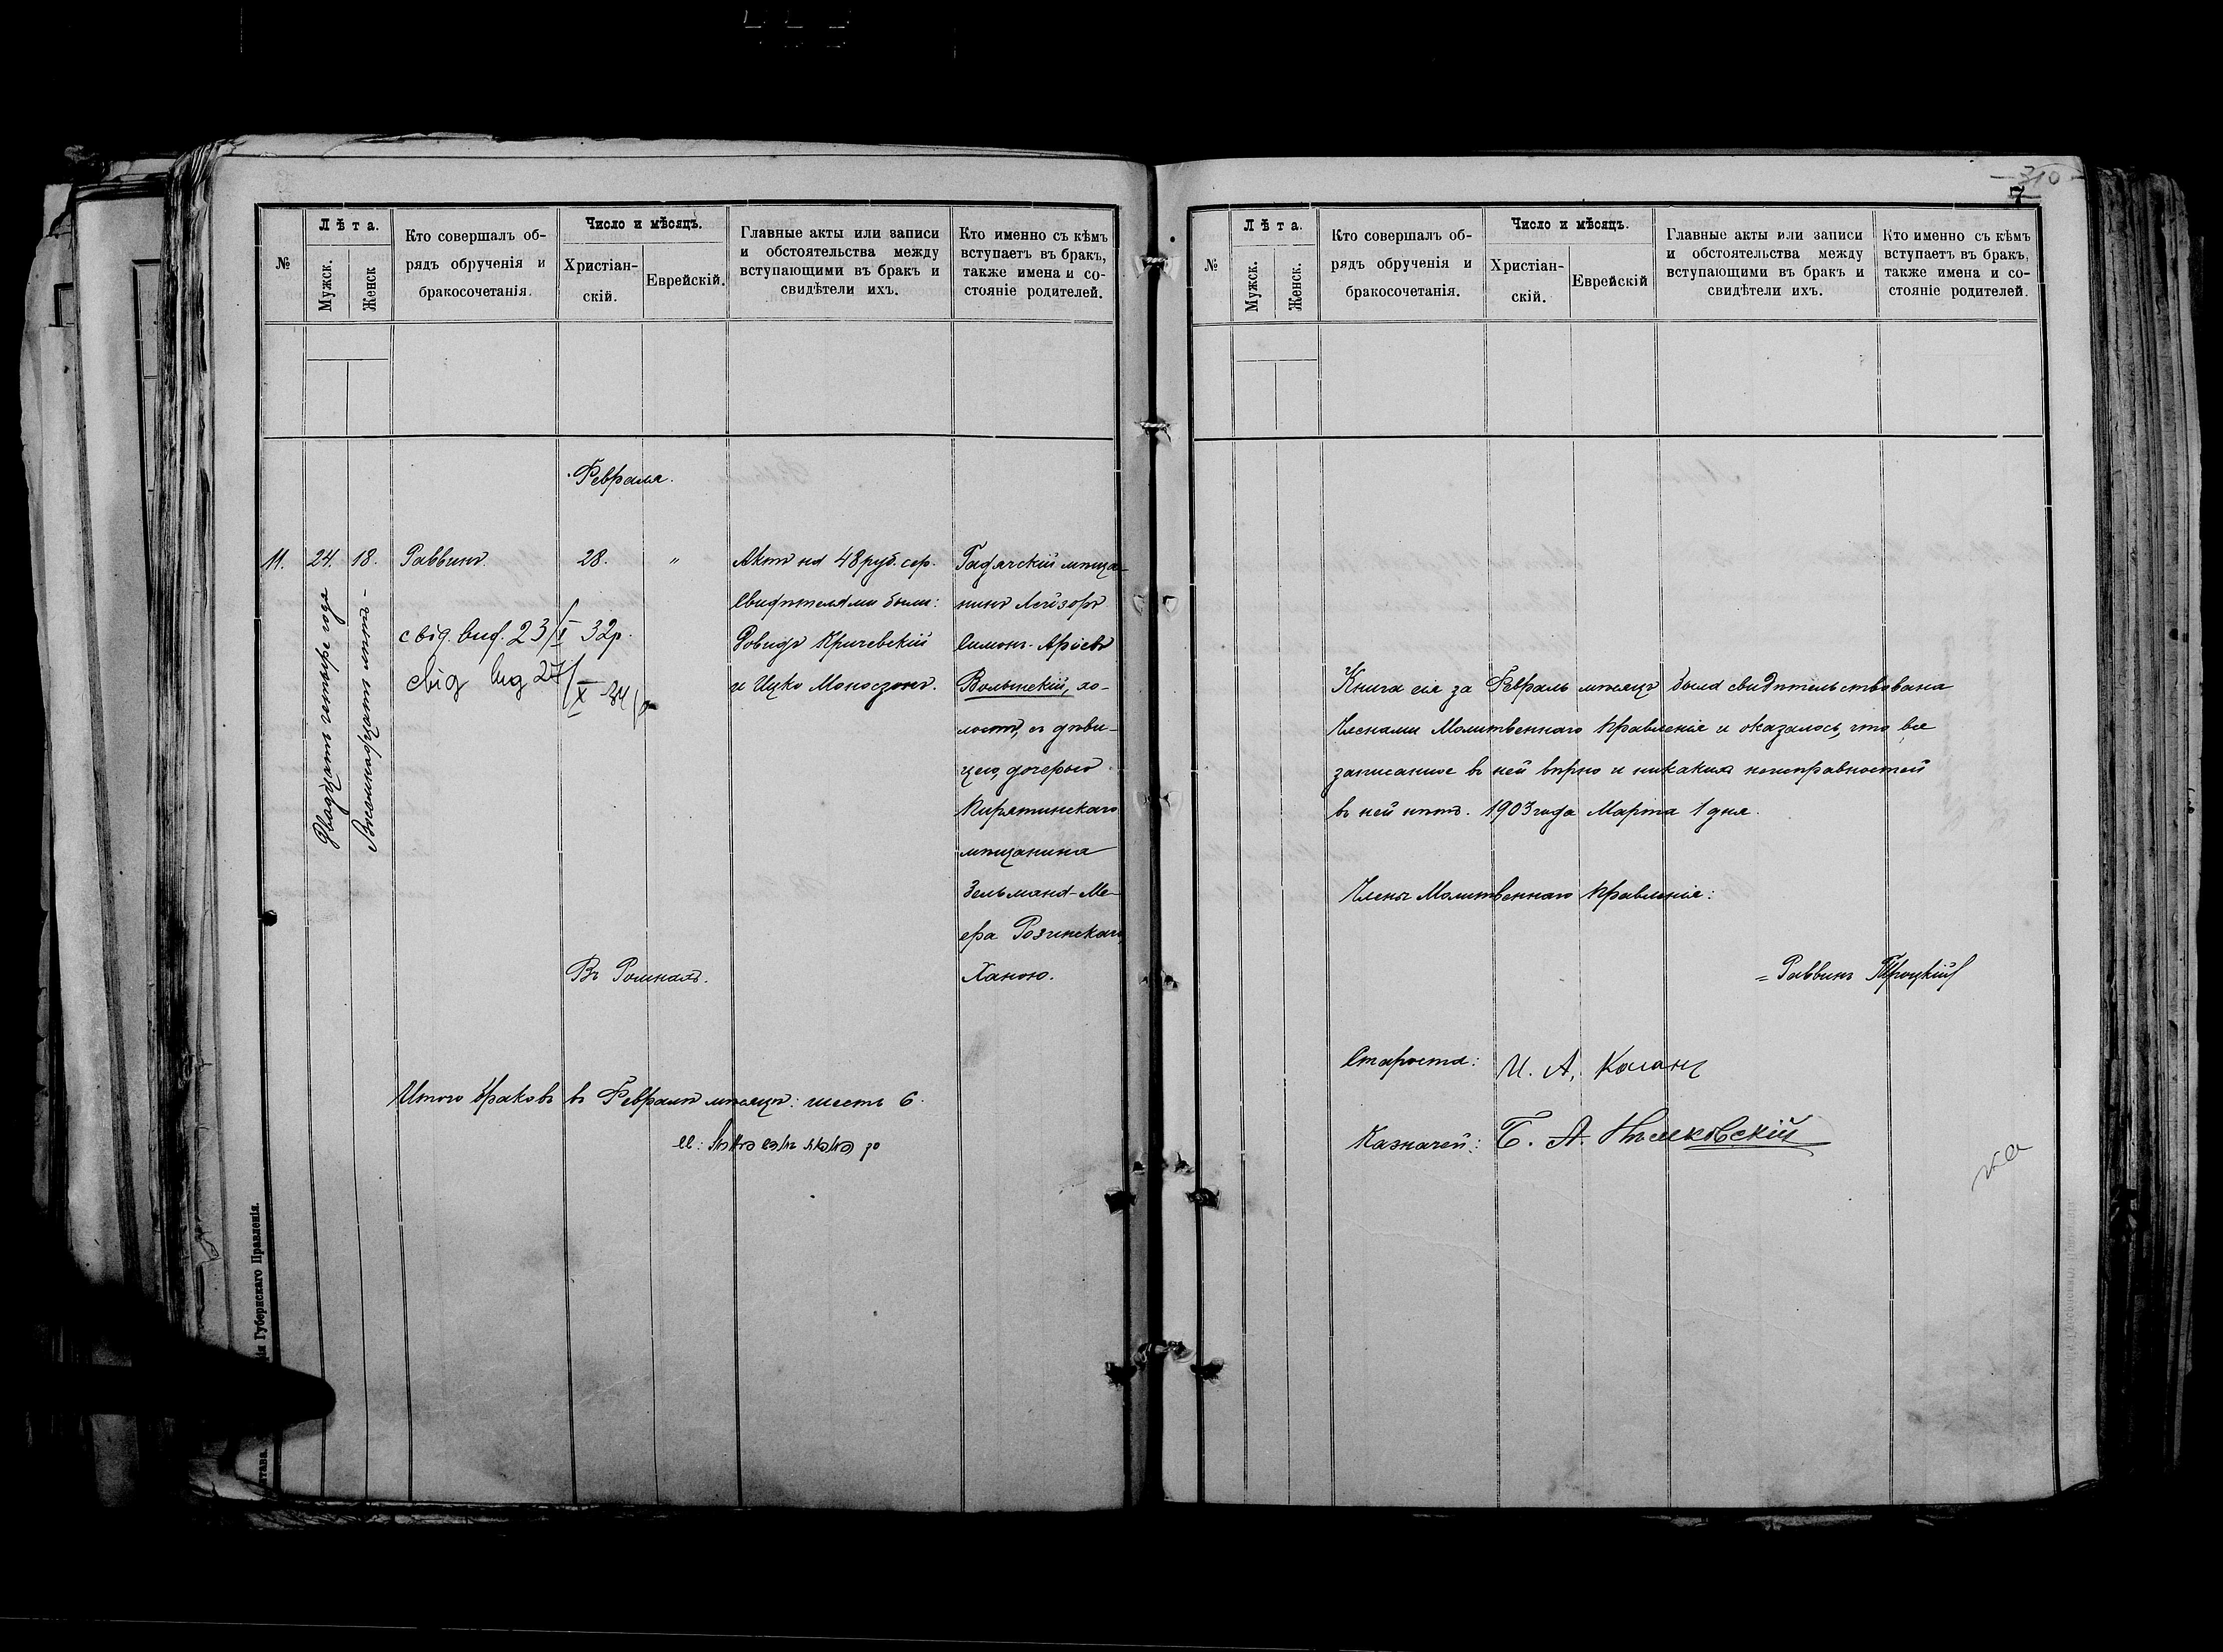 №
Лѣта.
Мужск.
Женск
Кто совершалъ об-
рядъ обрученія и
бракосочетанія.
Число и мѣсяцъ.
Христіан-
скій.
Еврейскій.
Главные акты или записи
и обстоятельства между
вступающими въ бракъ и
свидѣтели ихъ.
Кто именно съ кѣмъ
вступаетъ въ бракъ,
также имена и со-
стояніе родителей.
Февраля.
11.
24.
Двадцать четыре года
18.
Восемнадцать лѣтъ
Раввинъ.
свід. вид. 23/I 32р.
свід вид 27/X -34
28.
"
Въ Ромнахъ.
Актъ на 48 руб. сер.
Свидѣтелями были:
Довидъ Кричевскій
и Ицко Моносзонъ.
Гадячскій мѣща-
нинъ Лейзоръ
Симонъ-Аріевъ
Волынскій, хо-
лостъ, съ дѣви-
цею, дочерью
Пирятинскаго
мѣщанина
Зельмана-Ме-
ера Розинскаго,
Ханою.
Итого браковъ въ Февралѣ мѣсяцѣ: шесть 6.
310
7
№
Лѣта.
Мужск.
Женск.
Кто совершалъ об-
рядъ обрученія и
бракосочетанія.
Число и мѣсяцъ.
Христіан-
скій.
Еврейскій
Главные акты или записи
и обстоятельства между
вступающими въ бракъ и
свидѣтели ихъ.
Кто именно съ кѣмъ
вступаетъ въ бракъ,
также имена и со-
стояніе родителей.
Книга сія за Февраль мѣсяцъ была свидѣтельствована
Членами Молитвеннаго Правленія и оказалось, что все
записанное въ ней вѣрно и никакихъ неисправностей
въ ней нѣтъ. 1903 года Марта 1 дня.
Члены Молитвеннаго Правленія:
Раввинъ Троцкій
Староста: И. А. Коганъ
Казначей: Б. А.
Губернскаго Правленія.